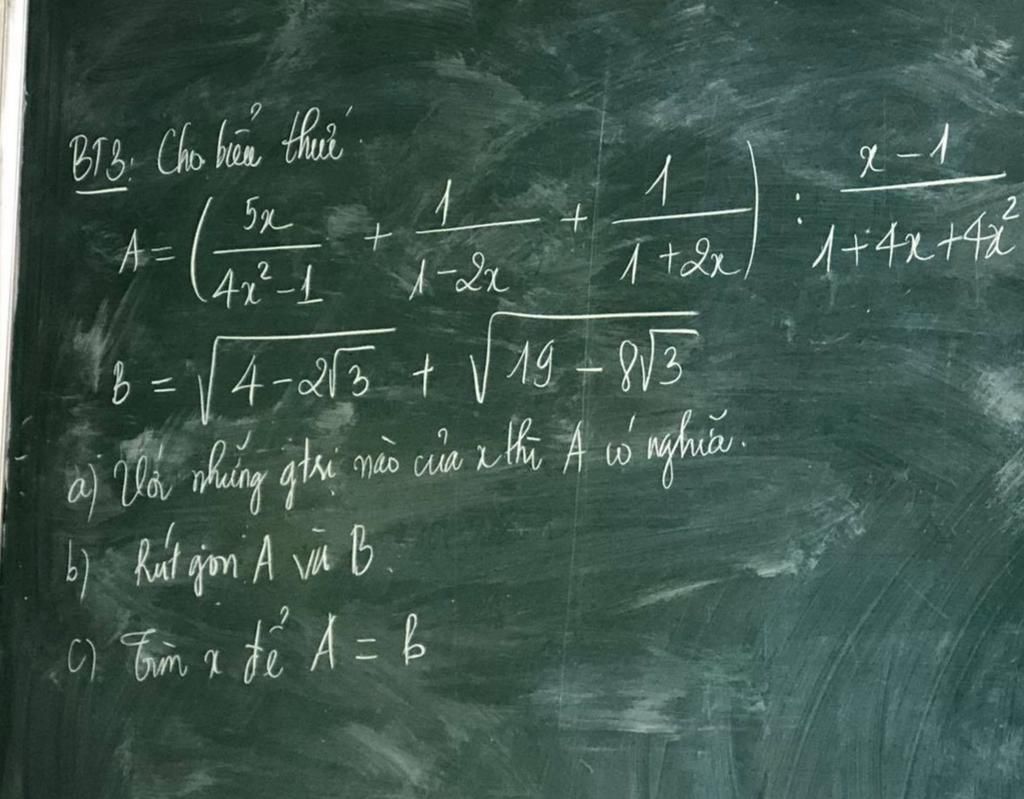 BT3: Cho biểu thức:
A = (5x/(4x² - 1) + 1/(1 - 2x) + 1/(1 + 2x)) : (x - 1)/(1 + 4x + 4x²)
B = √(4 - 2√3) + √(19 - 8√3)
a) Với những gtrị nào của x thì A có nghĩa.
b) Rút gọn A và B.
c) Tìm x để A = B